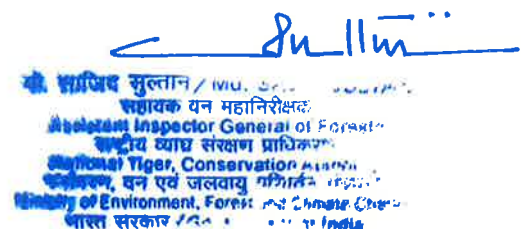 साजिद सुल्तान / MD.
सहायक वन महानिरीक्षक
Assistant Inspector General of Forests
राष्ट्रीय व्याघ्र संरक्षण प्राधिकरण
National Tiger, Conservation
पर्यावरण, वन एवं जलवायु परिवर्तन
Ministry of Environment, Forest and Climate Change
भारत सरकार / India